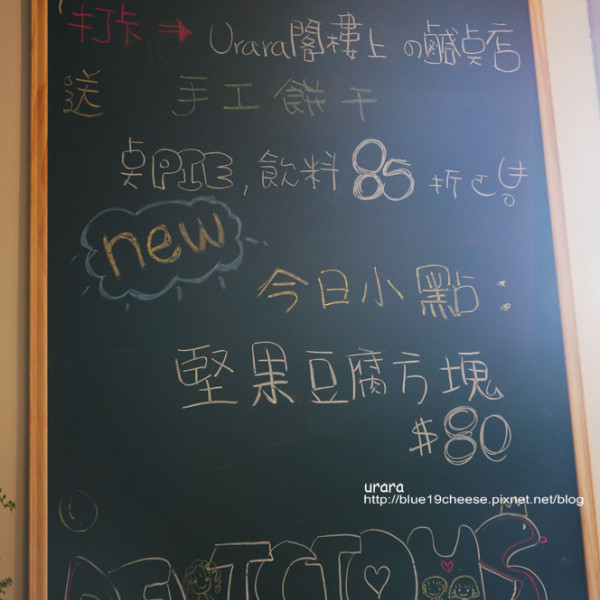 打卡 → Urara閣樓上の鹹点店
送 手工餅干
点PIE, 飲料 85 折
new
今日小點:
堅果豆腐方塊
$80
urara
http://blue19cheese.pixnet.net/blog